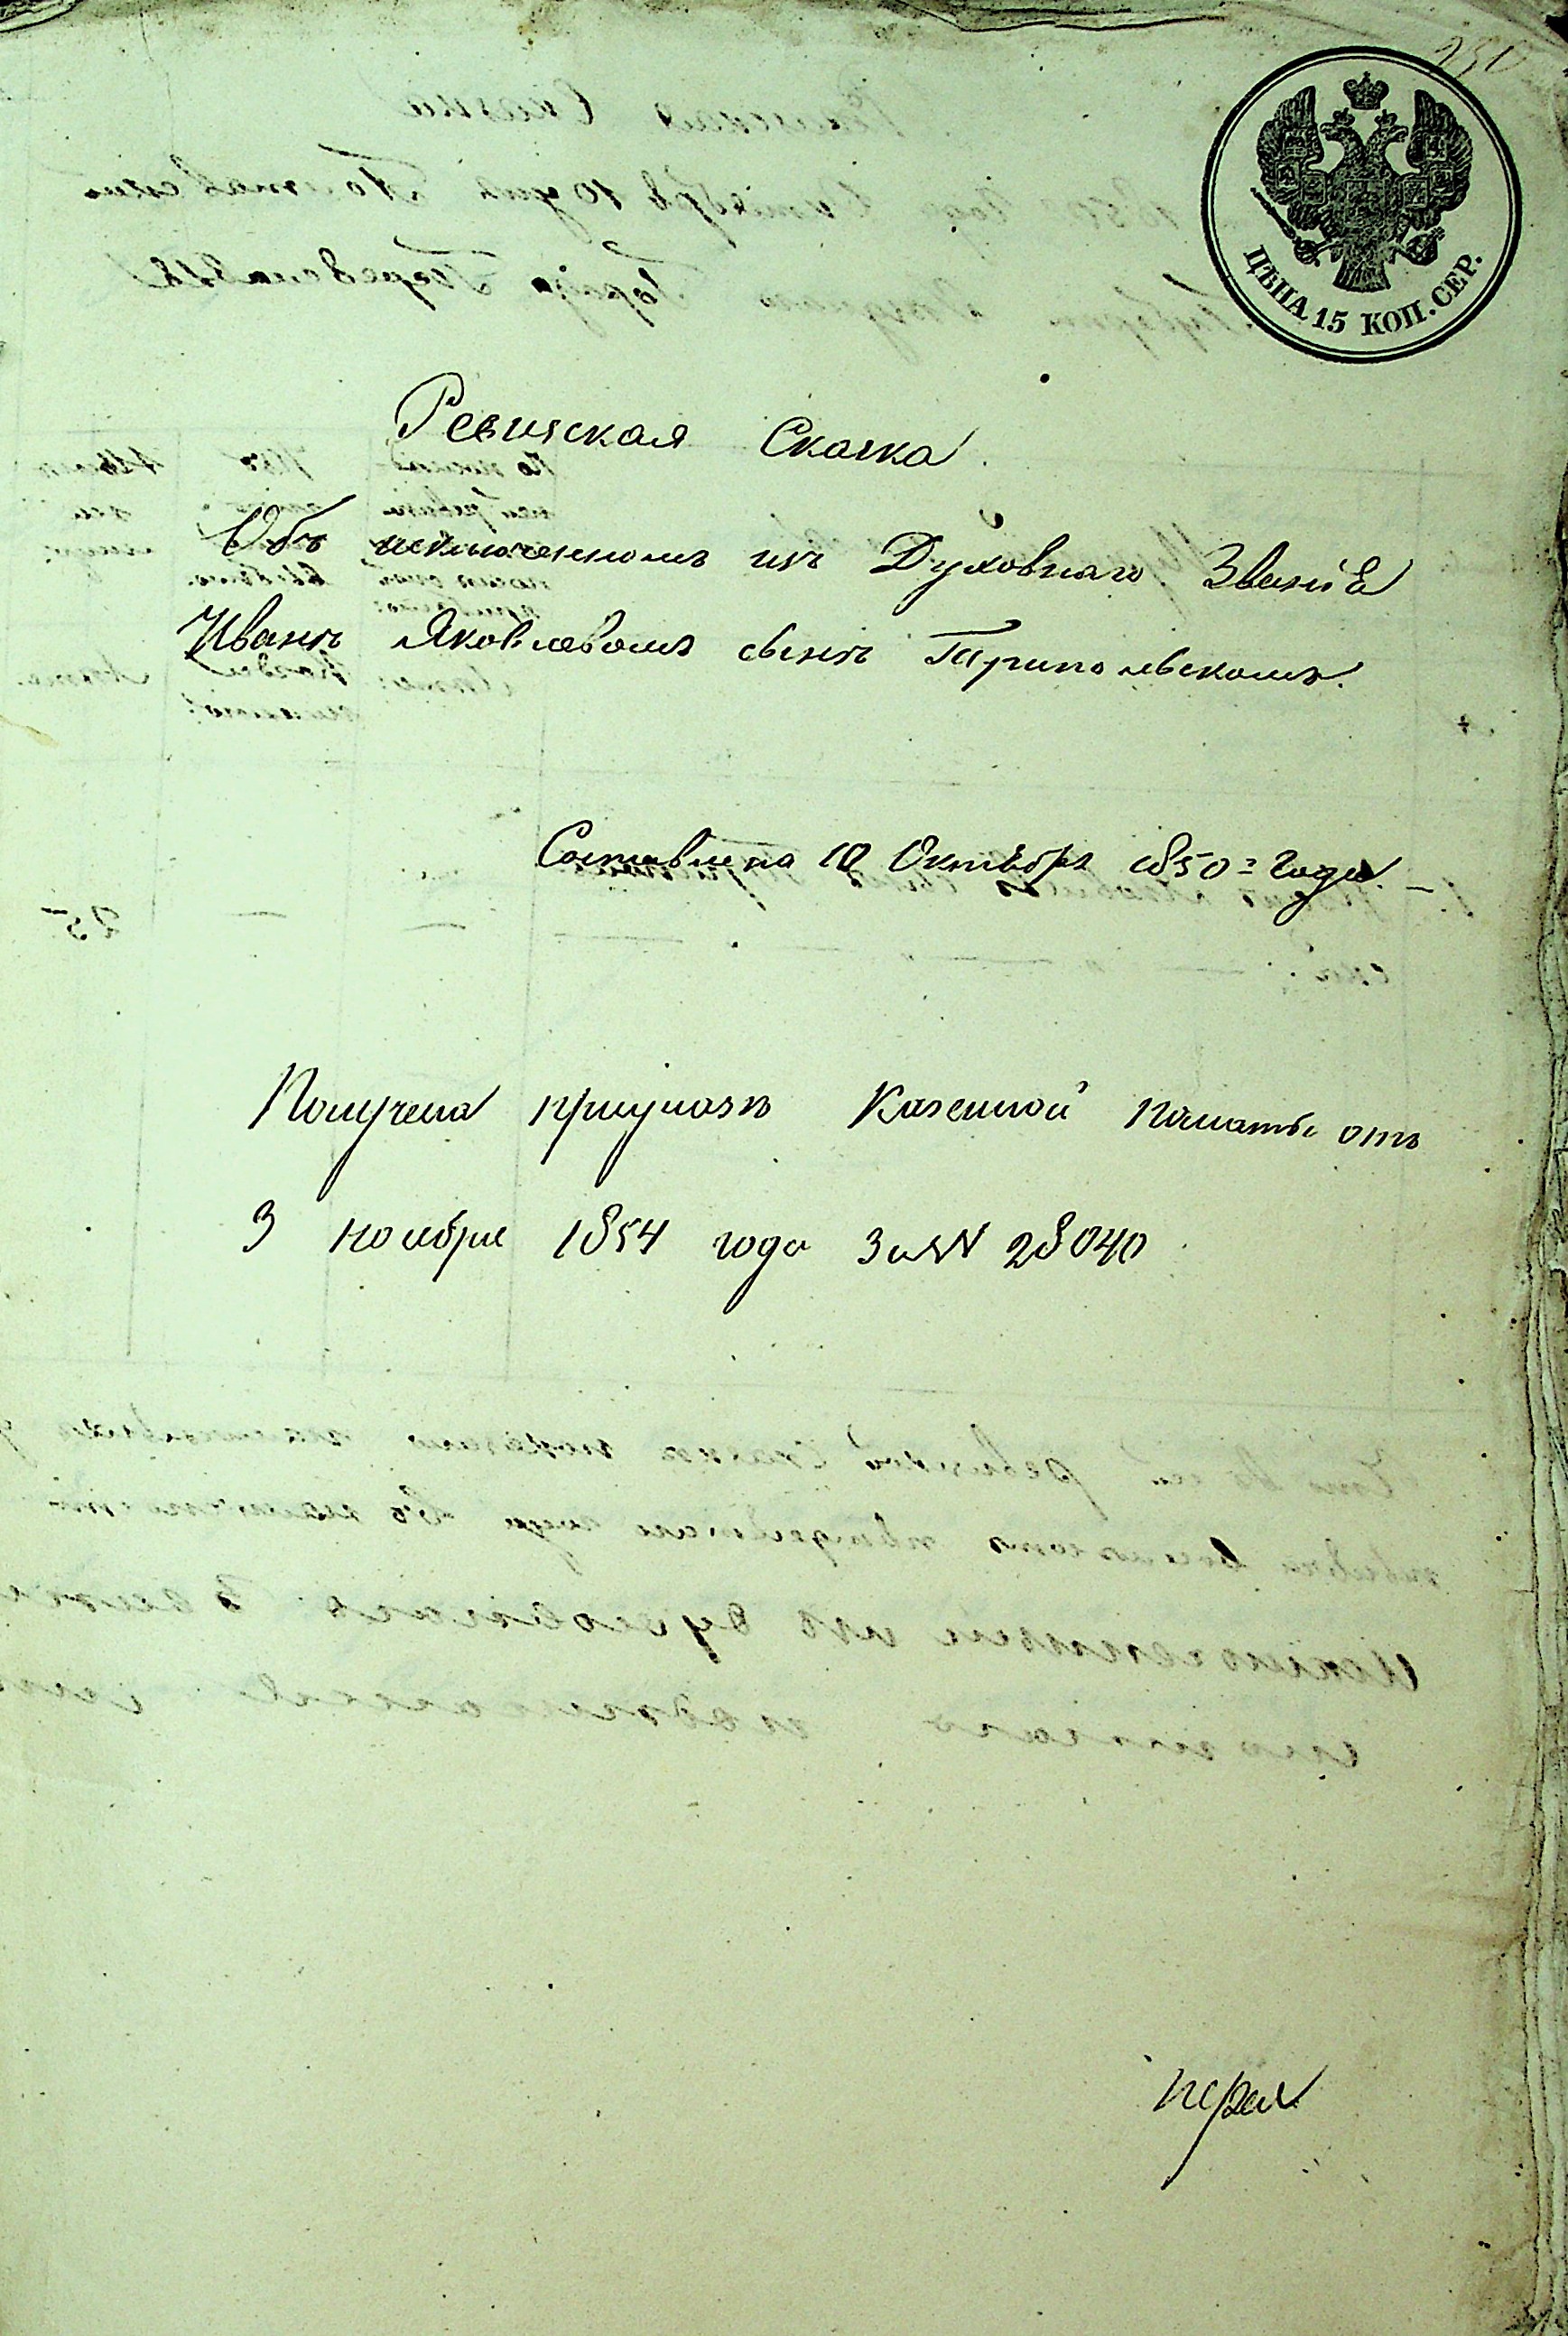 230
ЦѢНА 15 КОП. СЕР.
Ревизская Сказка
Объ исключенномъ изъ Духовнаго Званія
Иванѣ Яковлевомъ сынѣ Трипольскомъ.
Составлена 10 Октября 1850 = Года. —
Получена при указѣ Казенной палаты отъ
3 ноября 1854 года За № 28040